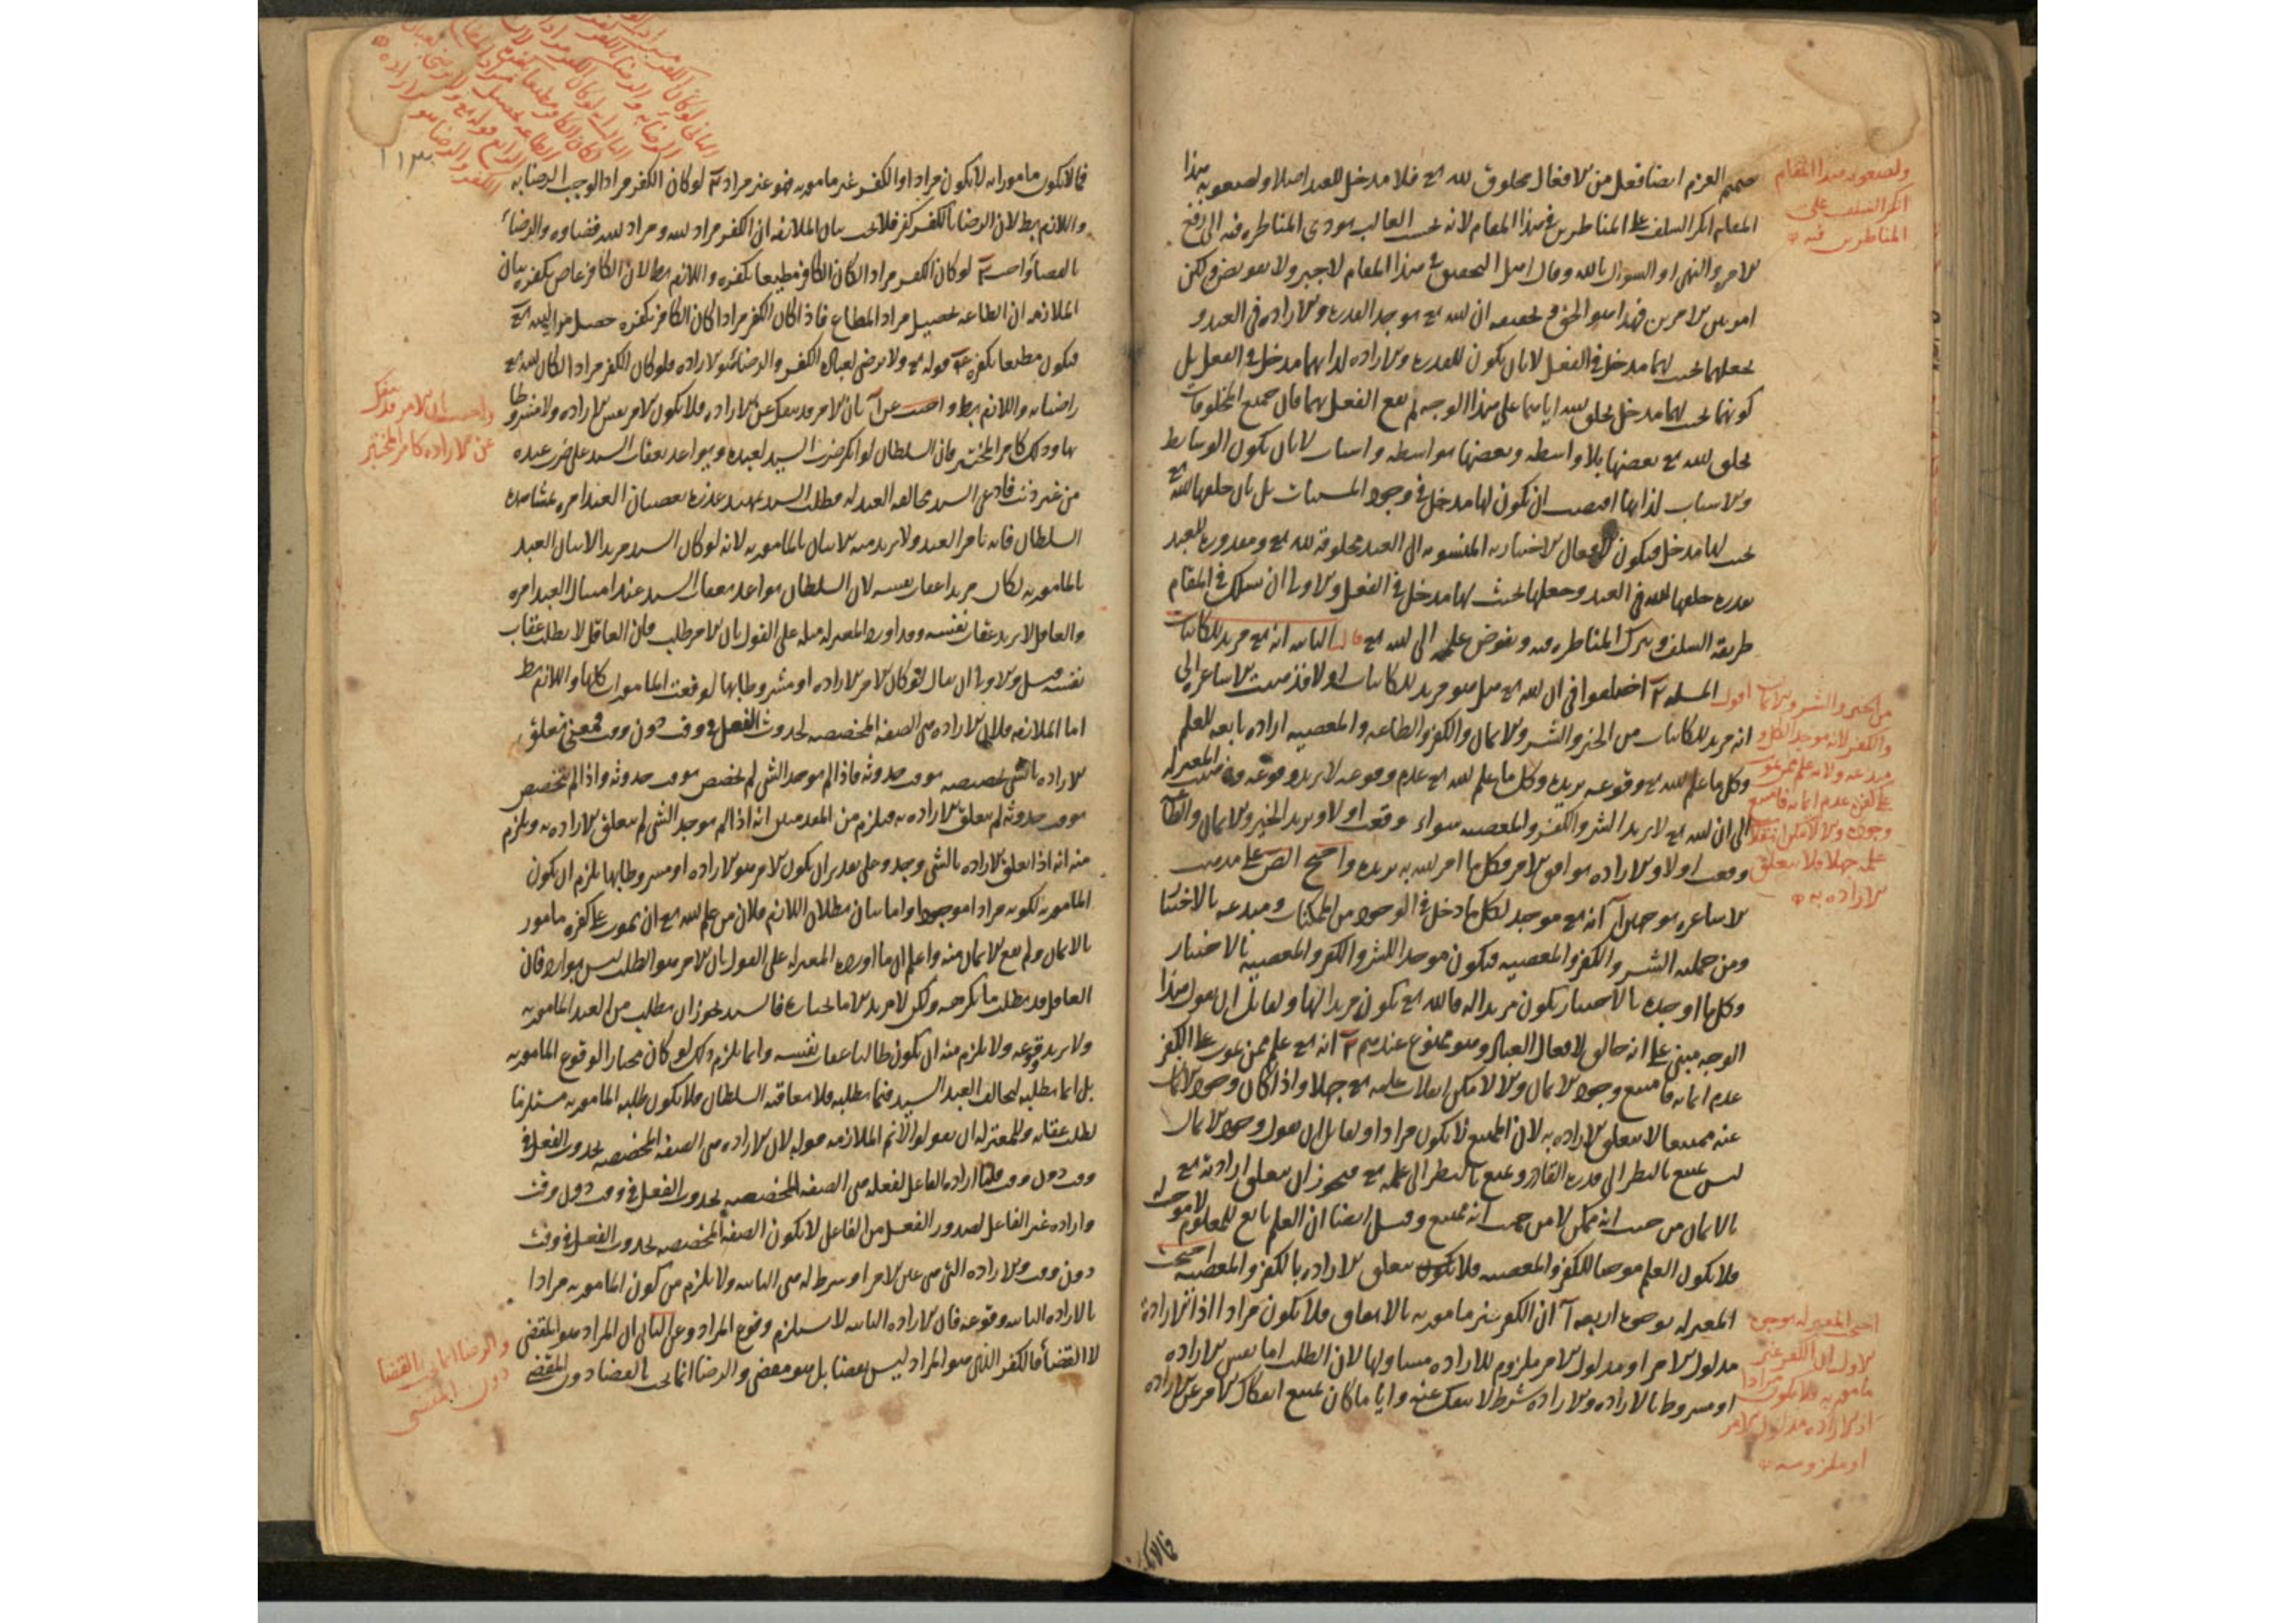 صمم العزم ايضا فعل من الافعال مخلوق لله تع فلا مدخل للعبد اصلا ولصعوبة هذا
المقام انكر السلف على المناظرين في هذا المقام لانه بحسب الغالب يودى المناظره فيه الى رفع
الامر والنهى او السؤال بالله وقال اهل التحقيق في هذا المقام لا جبر ولا تفويض ولكن
امر بين الامرين فهذا هو الحق وتحقيقه ان الله تع يوجد القدره والاراده فى العبد و
يجعلهما بحيث لهما مدخل فى الفعل لا بان يكون للقدره والاراده لذاتهما مدخل فى الفعل بل
كونهما بحيث لهما مدخل بخلق الله اياهما على هذا الوجه ثم يقع الفعل بهما فان جميع المخلوقات
بخلق الله تع بعضها بلا واسطه وبعضها بواسطه واسباب لا بان يكون الوسايط
والاسباب لذاتها اقتضت ان يكون لها مدخل فى وجود المسببات بل بان خلقها الله تع
بحيث لها مدخل فيكون الافعال الاختياريه المنسوبه الى العبد مخلوقة لله تع ومقدوره للعبد
بقدره خلقها الله فى العبد وجعلها بحيث لها مدخل فى الفعل والاولى ان نسلك فى المقام
طريقة السلف ونترك المناظره فيه ونفوض علمه الى الله تع قال الثانيه انه تع مريد للكاينات
اقول المسله ٢ اختلفوا فى ان الله تع هل هو مريد للكاينات او لا فذهبت الاشاعره الى
انه مريد للكاينات من الخير والشر والايمان والكفر والطاعه والمعصيه اراده تابعه للعلم
وكل ما علم الله تع وقوعه يريده وكل ما علم الله تع عدم وقوعه لا يريد وقوعه وذهبت المعتزله
الى ان الله تع لا يريد الشر والكفر والمعصيه سواء وقعت او لا ويريد الخير والايمان والطاعة
وقعت او لا والاراده توافق الامر فكل ما امر الله به يريده واحتج المص على مذهب
الاشاعره بوجهين آ انه تع موجد لكل ما دخل فى الوجود من الممكنات ومبدعه بالاختيار
ومن جملته الشر والكفر والمعصيه فيكون موجدا للشر والكفر والمعصيه بالاختيار
وكل ما اوجده بالاختيار يكون مريدا له فالله تع يكون مريدا لها ولقايل ان يقول هذا
الوجه مبنى على انه خالق لافعال العباد وهو ممنوع عندهم ٢ انه تع علم ممن يموت على الكفر
عدم ايمانه فامتنع وجود الايمان والا لامكن انقلاب علمه تع جهلا واذا كان وجود الايمان
عنه ممتنعا لا يتعلق الاراده به لان الممتنع لا يكون مرادا ولقايل ان يقول وجود الايمان
ليس يمتنع بالنظر الى قدرة القادر ويمتنع بالنظر الى علمه تع فيجوز ان يتعلق ارادته تع
بالايمان من حيث انه ممكن لا من حيث انه ممتنع وقيل ايضا ان العلم تابع للمعلوم لا موجب له
فلا يكون العلم موجبا للكفر والمعصيه فلا يتعلق الاراده بالكفر والمعصيه احتجت
المعتزله بوجوه اربعه آ ان الكفر غير مامور به بالاتفاق فلا يكون مرادا اذ الاراده
مدلول الامر او مدلول الامر ملزوم للاراده مساو لها لان الطلب اما نفس الاراده
او مشروط بالاراده والاراده شرط لا ينفك عنه وايا ما كان يمتنع انفكاك الامر عن الاراده
فما لا
ولصعوبة هذا المقام
انكر السلف على
المناظرين فيه
من الخير والشر والايمان
والكفر لانه موجد الكل و
مبدعه ولانه علم ممن يموت
على الكفر عدم ايمانه فامتنع
وجوده والا لامكن انقلاب
علمه جهلا فلا يتعلق
الاراده به
احتج المعتزله بوجوه
الاول ان الكفر غير
مامور به فلا يكون مرادا
اذ الاراده مدلول الامر
او ملزومه
فما لا يكون مامورا به لا يكون مرادا والكفر غير مامور به فهو غير مراد ٢ لو كان الكفر مرادا لوجب الرضا به
واللازم بط لان الرضا بالكفر كفر فلا يجب بيان الملازمه ان الكفر مراد لله ومراد الله قضاوه والرضاء
بالقضاء واجب ٣ لو كان الكفر مرادا لكان الكافر مطيعا بكفره واللازم بط لان الكافر عاص بكفره بيان
الملازمه ان الطاعه تحصيل مراد المطاع فاذا كان الكفر مرادا كان الكافر بكفره حصل مراد الله تع
فيكون مطيعا بكفره ٤ قوله تع ولا يرضى لعباده الكفر والرضا هو الاراده فلو كان الكفر مرادا لكان الله تع
راضيا به واللازم بط واجيب عن آ بان الامر قد ينفك عن الاراده فلا يكون الامر نفس الاراده ولا مشروطا
بها وذلك كامر المختبر فان السلطان لو انكر ضرب السيد لعبده وتواعد بعقاب السيد على ضرب عبده
من غير ذنب فادعى السيد مخالفه العبد له فطلب السيد تمهيد عذره بعصيان العبد امره بمشاهدة
السلطان فانه يامر العبد ولا يريد منه الاتيان بالمامور به لانه لو كان السيد مريدا لاتيان العبد
بالمامور به لكان مريدا عقاب نفسه لان السلطان تواعد بعقاب السيد عند امتثال العبد امره
والعاقل لا يريد عقاب نفسه وقد اورد المعتزله مثله على القول بان الامر طلب فان العاقل لا يطلب عقاب
نفسه قيل والاولى ان يقال لو كان الامر الاراده او مشروطا بها لوقعت المامورات كلها واللازم بط
اما الملازمه فلان الاراده هى الصفه المخصصه لحدوث الفعل فى وقت دون وقت فمعنى تعلق
الاراده بالشى تخصيصه بوقت حدوثه فاذا لم يوجد الشى لم يخصص بوقت حدوثه واذا لم يتخصص
بوقت حدوثه لم يتعلق الاراده به فيلزم من المقدمتين انه اذا لم يوجد الشى لم يتعلق الاراده به ويلزم
منه انه اذا تعلق الاراده بالشى وجد وعلى تقدير ان يكون الامر هو الاراده او مشروطا بها يلزم ان يكون
المامور به لكونه مرادا موجودا واما بيان بطلان اللازم فلان من علم الله تع ان يموت على كفره مامور
بالايمان ولم يقع الايمان منه واعلم ان ما اورده المعتزله على القول بان الامر هو الطلب ليس بوارد فان
العاقل قد يطلب ما يكرهه ولكن لا يريد الا ما يختاره فالسيد يجوز ان يطلب من العبد المامور به
ولا يريد وقوعه ولا يلزم منه ان يكون طالبا عقاب نفسه وانما يلزم ذلك لو كان مختارا لوقوع المامور به
بل انما يطلبه ليخالف العبد السيد فيما يطلبه فلا يعاقبه السلطان فلا يكون طلبه المامور به مستلزما
لطلب عقابه وللمعتزله ان يقولوا لا نم الملازمه قوله لان الاراده هى الصفه المخصصه لحدوث الفعل فى
وقت دون وقت قلنا اراده الفاعل لفعله هى الصفه المخصصه لحدوث الفعل فى وقت دون وقت
واراده غير الفاعل لصدور الفعل من الفاعل لا يكون الصفه المخصصه لحدوث الفعل فى وقت
دون وقت والاراده التى هى عين الامر او شرط له هى الثانيه ولا يلزم من كون المامور به مرادا
بالاراده الثانيه وقوعه فان الاراده الثانيه لا يستلزم وقوع المراد وعن الثانى ان المراد هو المقضى
لا القضاء فالكفر الذى هو المراد ليس بقضا بل هو مقضى والرضا انما يجب بالقضا دون المقضى
واجيب بان الامر قد ينفك
عن الاراده كامر المختبر
والرضا انما يجب بالقضا
دون المقضى